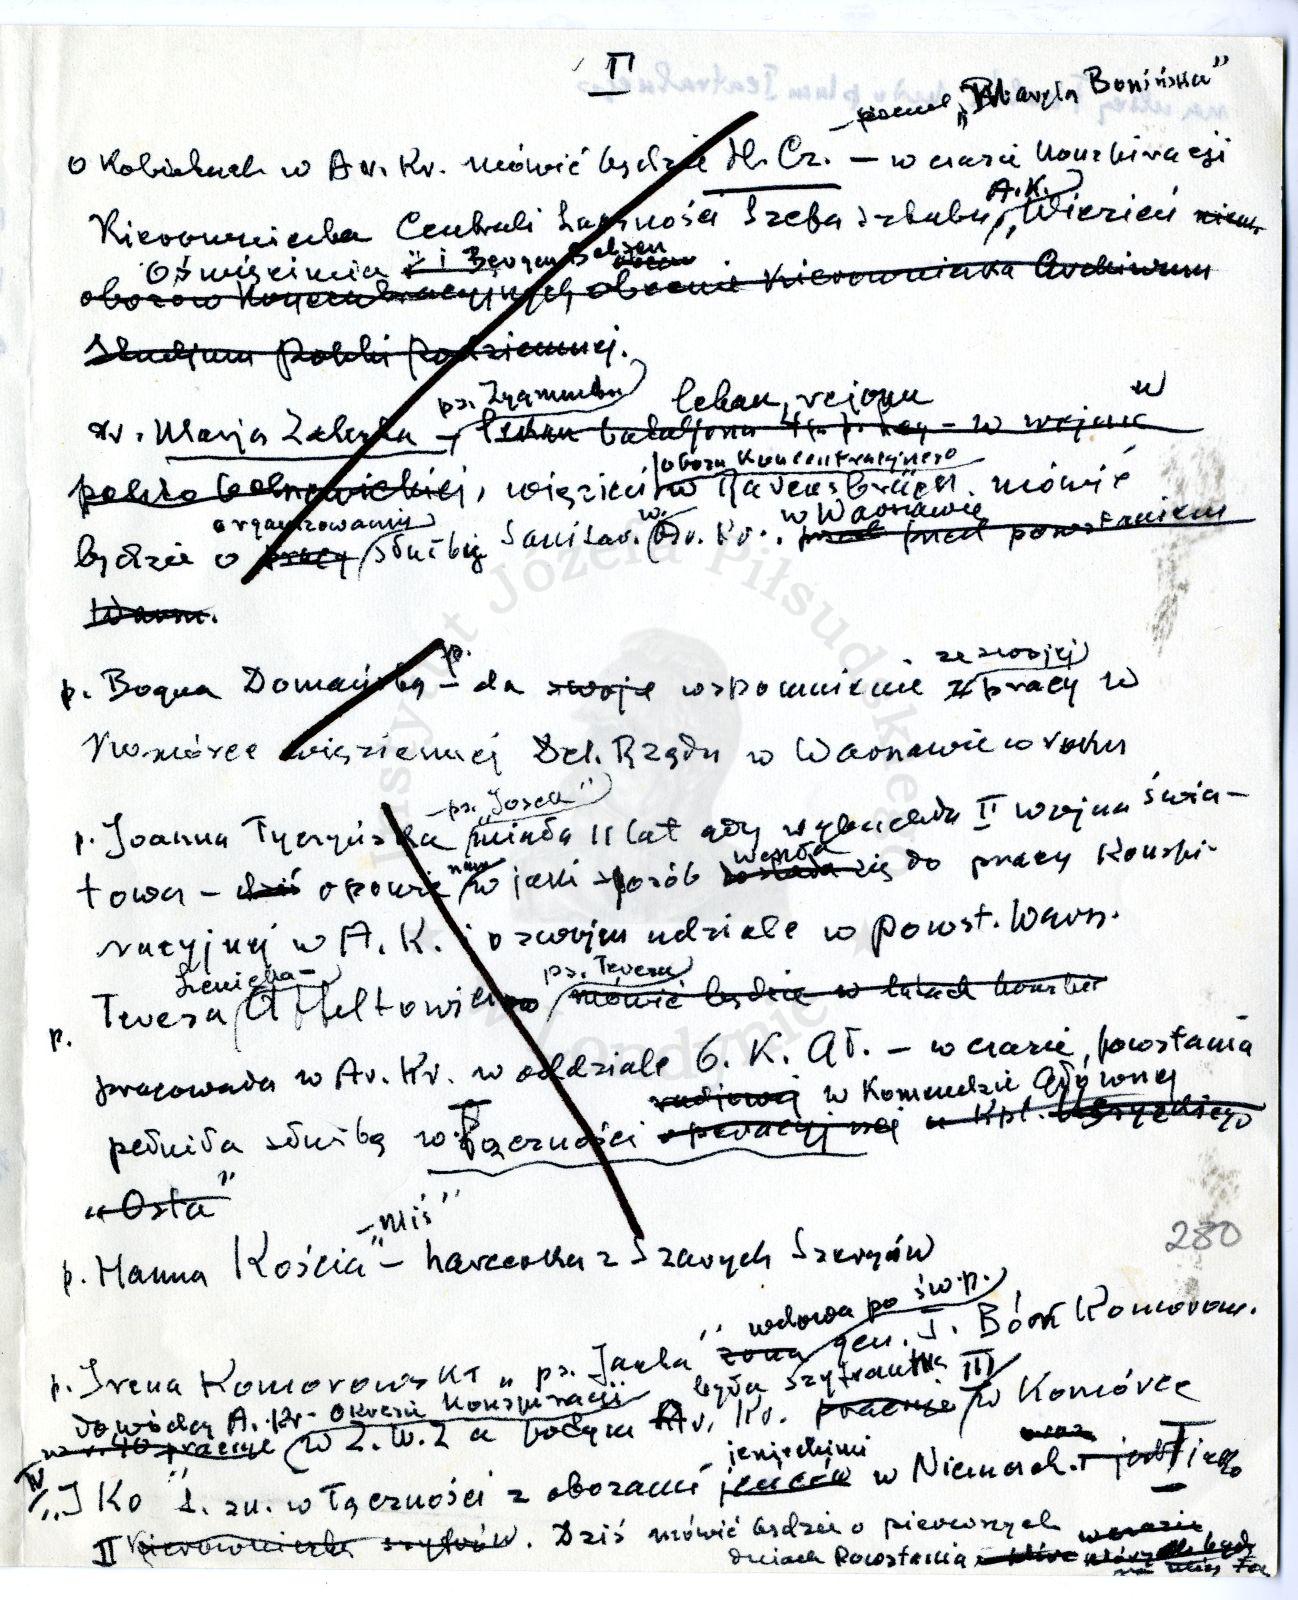 II
– pseud. „Maryla Bonińska”
o Kobietach w Ar. Kr. mówić będzie H. Cz. – w czasie Konspiracji
A.K.
Kierowniczka Centrali Łączności Szefa Sztabu, Więzień niem.
Oświęcimia i Bergen Belsen
obozów Koncentracyjnych, obecnie Kierowniczka Archiwum
Studium Polski Podziemnej.
ps. Zygmunta lekarz rejonu w
dr. Marja Zaleska – lekarz bataljonu – w wojnie
obozu Koncentracyjnego
polsko bolszewickiej, więzień w Ravensbrück. mówić
organizowaniu w. w Warszawie
będzie o pracy służby Sanitar. Ar. Kr. przed powstaniem
Warsz.
p. Bogna Domańska – da swoje wspomnienie z ze swojej pracy w
Komórce więziennej Del. Rządu w Warszawie w roku
– ps. „Josek”
p. Joanna Tyczyńska miała 11 lat gdy wybuchła II wojna świa-
nam weszła
towa – dziś opowie w jaki sposób dostała się do pracy Konspi-
racyjnej w A. K. i o swojem udziale w Powst. Warsz.
ps. Teresa
p. Teresa Affeltowicz mówić będzie w latach konspir
pracowała w Ar. Kr. w oddziale 6. K. Gł. – w czasie powstania
radjowej w Komendzie Głównej
pełniła służbę w Łączności operacyjnej u Kpt.
„Osta”
– „Miś”
280
p. Hanna Kościa – harcerka z Szarych Szeregów
wdowa po św.p.
p. Irena Komorowska „ps. Janka” żona gen. T. Bór Komorow.
była szyfrantką III
dowódcy A. Kr. okresie Konspiracji
w r. 40 pracuje w Z.W.Z a potym Ar. Kr. pracuje w Komórce
jenieckimi oraz
IV „IKo” t. zn. w łączności z obozami jeńców w Niemczech. i
II Kierowniczka szyfrów. Dziś mówić będzie o pierwszych w czasie
dniach Powstania